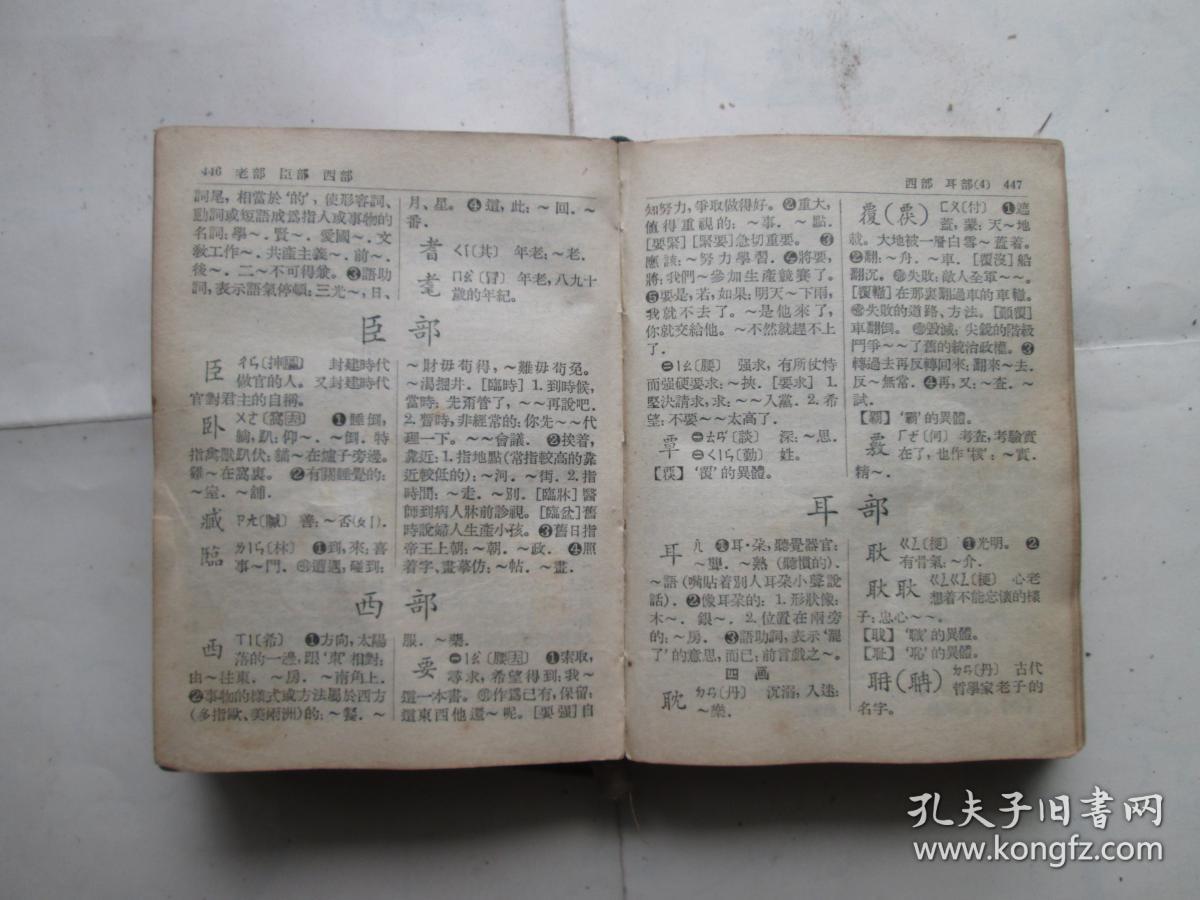 446 老部 臣部 西部
詞尾，相當於‘的’，使形容詞、
動詞或短語成爲指人或事物的
名詞：學～．賢～．愛國～．文
敎工作～．共產主義～．前～
後～．二～不可得兼．❸語助
詞，表示語氣停頓：三光～，日、
月、星。❹這，此：～回．～
番．
耆 ㄑㄧ〔其〕 年老：～老．
耄 ㄇㄠ〔冒〕 年老，八九十
歲的年紀。
臣部
臣 ㄔㄣ 封建時代
做官的人。又封建時代
官對君主的自稱。
卧 ㄨㄛ ❶睡倒，
躺，趴：仰～．～倒．特
指禽獸趴伏：貓～在爐子旁邊。
雞～在窩裏。❷有關睡覺的：
～室．～舖．
臧 ㄗㄤ 善：～否
臨 ㄌㄧㄣ〔林〕❶到，來：喜
事～門．遭遇，碰到：
～財毋苟得，～難毋苟免。
～渴掘井．[臨時] 1. 到時候，
當時：先甭管了，～～再說吧．
2. 暫時，非經常的：你先～～代
理一下。～～會議．❷挨着，
靠近：1. 指地點(常指較高的靠
近較低的)：～河．～街．2. 指
時間：～走．～別．[臨牀]醫
師到病人牀前診視。[臨盆]舊
時說婦人生產小孩。❸舊日指
帝王上朝：～朝．～政．❹照
着字、畫摹仿：～帖．～畫．
西部
西 ㄒㄧ〔希〕 ❶方向，太陽
落的一邊，跟‘東’相對：
由～往東．～房．～南角上．
❷事物的樣式或方法屬於西方
(多指歐、美兩洲)的：～餐．～
服．～藥．
要 ㊀ㄧㄠ ❶索取，
尋求，希望得到：我～
這一本書。作爲已有，保留：
這東西他還～呢。[要强]自
西部 耳部(4) 447
知努力，爭取做得好。❷重大，
值得重視的：～事．～點．
[要緊][緊要]急切重要。❸
應該：～努力學習．❹將要，
將：我們～參加生產競賽了。
❺要是，若，如果：明天～下雨，
我就不去了。～是他來了，
你就交給他。～不然就趕不上
了．
㊁ㄧㄠ〔腰〕 强求，有所仗恃
而强硬要求：～挾．[要求] 1.
堅決請求，求：～～入黨．2. 希
望：不要～～太高了．
覃 ㊀ㄊㄢ〔談〕 深：～思．
㊁ㄑㄧㄣ〔勤〕 姓。
‘覆’的異體。
覆 ㄈㄨ〔付〕 ❶遮
蓋，蒙：天～地
載。大地被一層白雪～蓋着。
❷翻：～舟．～車．[覆沒]船
翻沉。失敗：敵人全軍～～．
[覆轍]在那裏翻過車的車轍。
失敗的道路、方法。[顚覆]
車翻倒。毀滅：尖銳的階級
鬥爭～～了舊的統治政權。❸
轉過去再反轉回來：翻來～去．
反～無常．❹再，又：～查．～
試．
【覇】‘霸’的異體。
覈 ㄏㄜ〔何〕考查，考驗實
在了，也作‘核’：～實．
精～．
耳部
耳 ㄦ ❶耳·朵，聽覺器官：
～聾．～熟（聽慣的）．
～語（嘴貼着別人耳朵小聲說
話）．❷像耳朵的：1. 形狀像：
木～．銀～．2. 位置在兩旁
的：～房．❸語助詞，表示‘罷
了’的意思，而已：前言戲之～。
四画
耽 ㄉㄢ〔丹〕 沉溺，入迷：
～樂．
耿 ㄍㄥ〔梗〕 ❶光明．❷
有骨氣：～介．
耿耿 ㄍㄥㄍㄥ〔梗〕 心老
想着不能忘懷的樣
子：忠心～～．
【聀】‘職’的異體。
【耻】‘恥’的異體。
耼(聃) ㄉㄢ〔丹〕 古代
哲學家老子的
名字。
孔夫子旧书网
www.kongfz.com